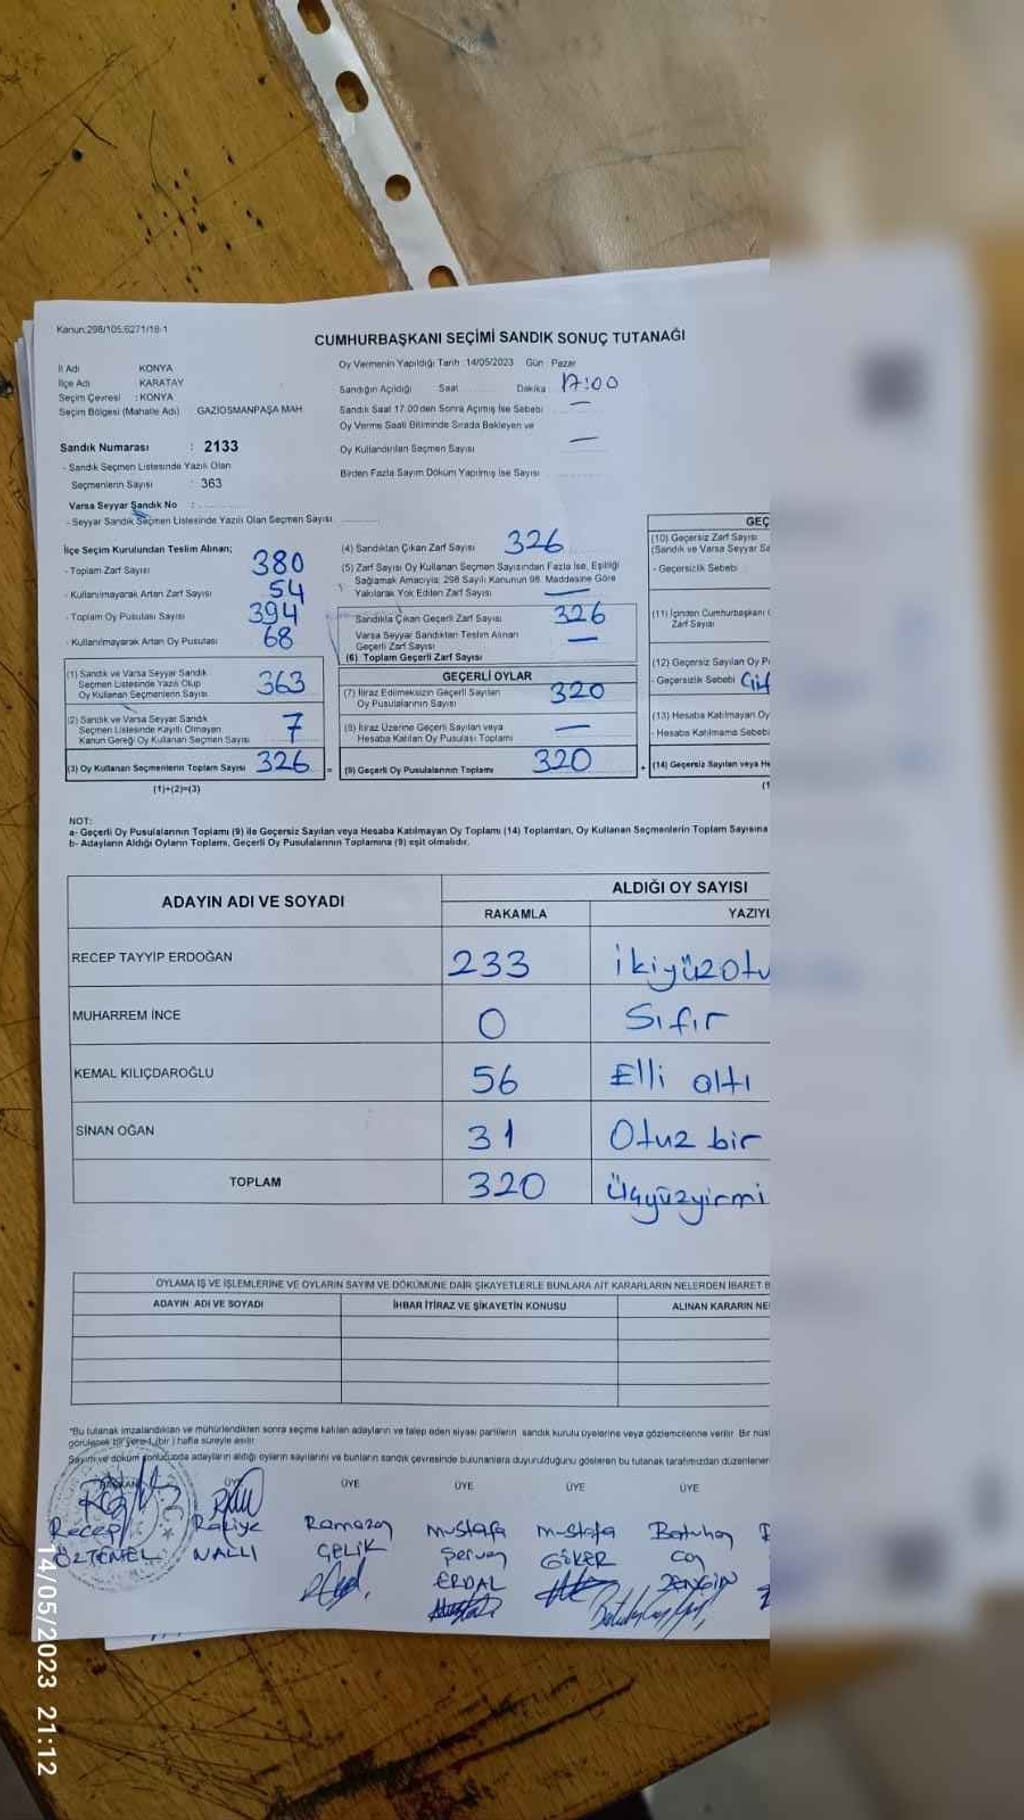 Kanun:298/105;6271/18-1
CUMHURBAŞKANI SEÇİMİ SANDIK SONUÇ TUTANAĞI
İl Adı KONYA
İlçe Adı KARATAY
Seçim Çevresi : KONYA
Seçim Bölgesi (Mahalle Adı) GAZİOSMANPAŞA MAH.
Sandık Numarası : 2133
- Sandık Seçmen Listesinde Yazılı Olan
Seçmenlerin Sayısı : 363
Varsa Seyyar Sandık No :
- Seyyar Sandık Seçmen Listesinde Yazılı Olan Seçmen Sayısı
Oy Vermenin Yapıldığı Tarih :14/05/2023 Gün : Pazar
Sandığın Açıldığı Saat Dakika : 17:00
Sandık Saat 17.00'den Sonra Açılmış İse Sebebi —
Oy Verme Saati Bitiminde Sırada Bekleyen ve
Oy Kullandırılan Seçmen Sayısı —
Birden Fazla Sayım Döküm Yapılmış İse Sayısı
İlçe Seçim Kurulundan Teslim Alınan;
- Toplam Zarf Sayısı 380
- Kullanılmayarak Artan Zarf Sayısı 54
- Toplam Oy Pusulası Sayısı 394
- Kullanılmayarak Artan Oy Pusulası 68
(1) Sandık ve Varsa Seyyar Sandık
Seçmen Listesinde Yazılı Olup
Oy Kullanan Seçmenlerin Sayısı 363
(2) Sandık ve Varsa Seyyar Sandık
Seçmen Listesinde Kayıtlı Olmayan
Kanun Gereği Oy Kullanan Seçmen Sayısı 7
(3) Oy Kullanan Seçmenlerin Toplam Sayısı 326
(1)+(2)=(3)
(4) Sandıktan Çıkan Zarf Sayısı 326
(5) Zarf Sayısı Oy Kullanan Seçmen Sayısından Fazla İse, Eşitliği
Sağlamak Amacıyla; 298 Sayılı Kanunun 98. Maddesine Göre
Yakılarak Yok Edilen Zarf Sayısı —
Sandıkta Çıkan Geçerli Zarf Sayısı 326
Varsa Seyyar Sandıktan Teslim Alınan
Geçerli Zarf Sayısı —
(6) Toplam Geçerli Zarf Sayısı
GEÇERLİ OYLAR
(7) İtiraz Edilmeksizin Geçerli Sayılan
Oy Pusulalarının Sayısı 320
(8) İtiraz Üzerine Geçerli Sayılan veya
Hesaba Katılan Oy Pusulası Toplamı —
= (9) Geçerli Oy Pusulalarının Toplamı 320 +
GEÇ
(10) Geçersiz Zarf Sayısı
(Sandık ve Varsa Seyyar Sa
- Geçersizlik Sebebi
(11) İçinden Cumhurbaşkanı
Zarf Sayısı
(12) Geçersiz Sayılan Oy P
- Geçersizlik Sebebi
(13) Hesaba Katılmayan Oy
- Hesaba Katılmama Sebebi
(14) Geçersiz Sayılan veya He
(1
NOT:
a- Geçerli Oy Pusulalarının Toplamı (9) ile Geçersiz Sayılan veya Hesaba Katılmayan Oy Toplamı (14) Toplamları, Oy Kullanan Seçmenlerin Toplam Sayısına
b- Adayların Aldığı Oyların Toplamı, Geçerli Oy Pusulalarının Toplamına (9) eşit olmalıdır.
ADAYIN ADI VE SOYADI ALDIĞI OY SAYISI
RAKAMLA YAZIYL
RECEP TAYYİP ERDOĞAN 233 ikiyüzotu
MUHARREM İNCE 0 Sıfır
KEMAL KILIÇDAROĞLU 56 Elli altı
SİNAN OĞAN 31 Otuz bir
TOPLAM 320 üçyüzyirmi
OYLAMA İŞ VE İŞLEMLERİNE VE OYLARIN SAYIM VE DÖKÜMÜNE DAİR ŞİKAYETLERLE BUNLARA AİT KARARLARIN NELERDEN İBARET B
ADAYIN ADI VE SOYADI İHBAR İTİRAZ VE ŞİKAYETİN KONUSU ALINAN KARARIN NE
*Bu tutanak imzalandıktan ve mühürlendikten sonra seçime katılan adayların ve talep eden siyasi partilerin sandık kurulu üyelerine veya gözlemcilerine verilir. Bir nüs
görülecek bir yere 1 (bir) hafta süreyle asılır.
Sayım ve döküm sonucunda adayların aldığı oyların sayılarını ve bunların sandık çevresinde bulunanlara duyurulduğunu gösteren bu tutanak tarafımızdan düzenlener
BAŞKAN ÜYE ÜYE ÜYE ÜYE ÜYE
Recep Rakiye Ramazan Mustafa Mustafa Batuhan
ÖZTEMEL NALLI ÇELİK Servan GÖKER Can
ERDAL ZENGİN
14/05/2023 21:12